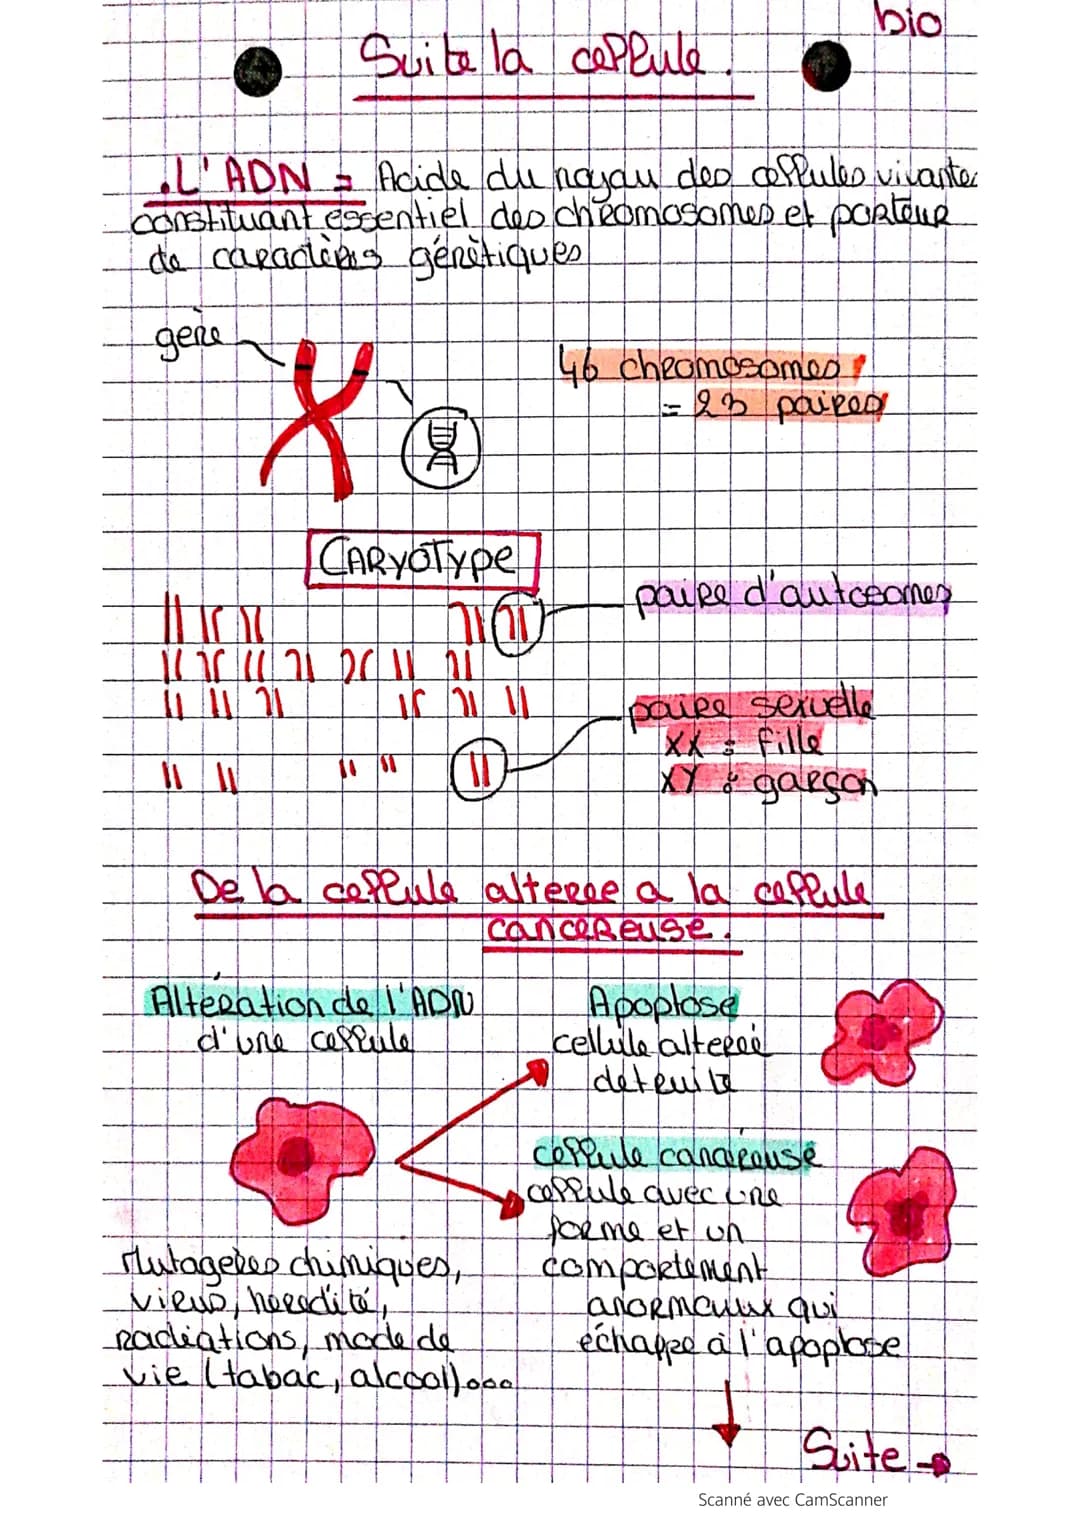 bio
Suite la cellule.
.L'ADN = Acide du noyau des cellules vivantes
constituant essentiel des chromosomes et porteur
de caractères génétiques
gène
46 chromosomes
= 23 paires
CARYOTYPE
paire d'autosomes
paire sexuelle
XX : fille
XY : garçon
De la cellule alteree a la cellule
cancereuse.
Altération de l'ADN
d'une cellule
Apoptose
cellule alterée
detruite
cellule cancéreuse
cellule avec une
forme et un
comportement
anormaux qui
échappe à l'apoptose
Mutagenes chimiques,
virus, heredité,
radiations, mode de
vie (tabac, alcool)...
Suite →
Scanné avec CamScanner